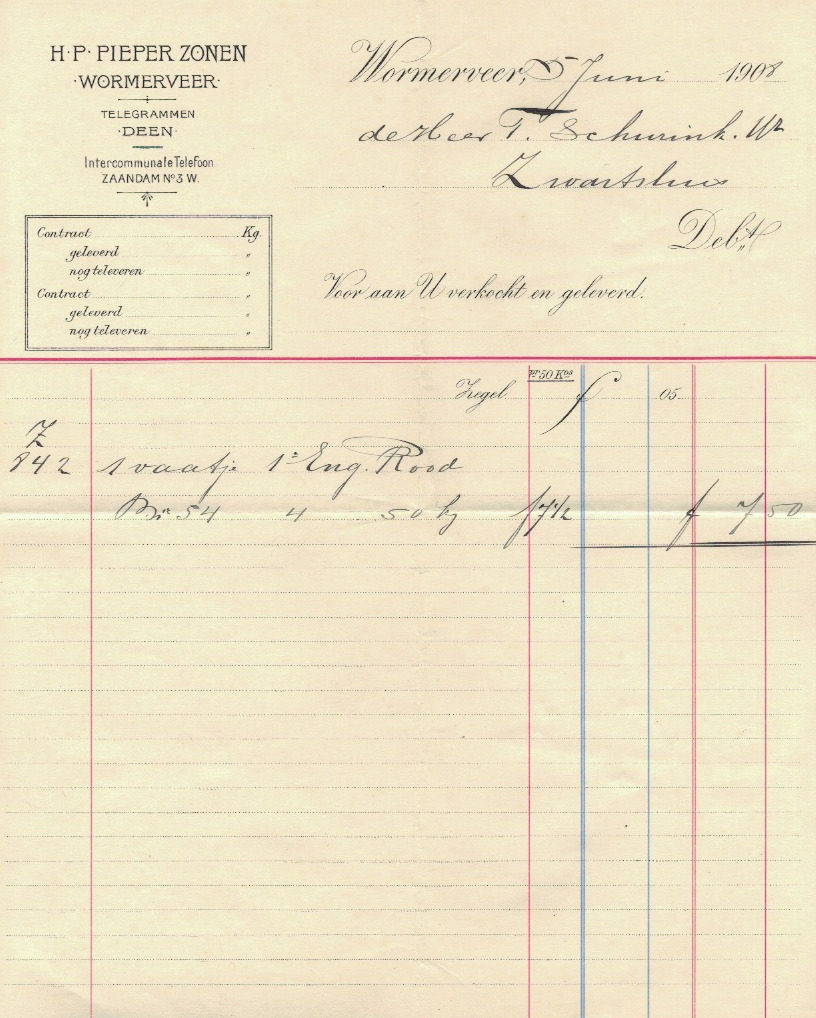 H·P· PIEPER ZONEN
·WORMERVEER·
TELEGRAMMEN
·DEEN·
Intercommunale Telefoon
ZAANDAM Nº 3 W.
Wormerveer, 5 Juni 1908
de Heer T. Schurink. Wz
Zwartsluis
Debt.
Contract Kg.
geleverd "
nog televeren "
Contract "
geleverd "
nog televeren "
Voor aan U verkocht en geleverd.
pr 50 Kos
Zegel f 05.
Z
842 1 vaatje 1e Eng. Rood
54 4 50 kg f 7 1/2 f 7 50